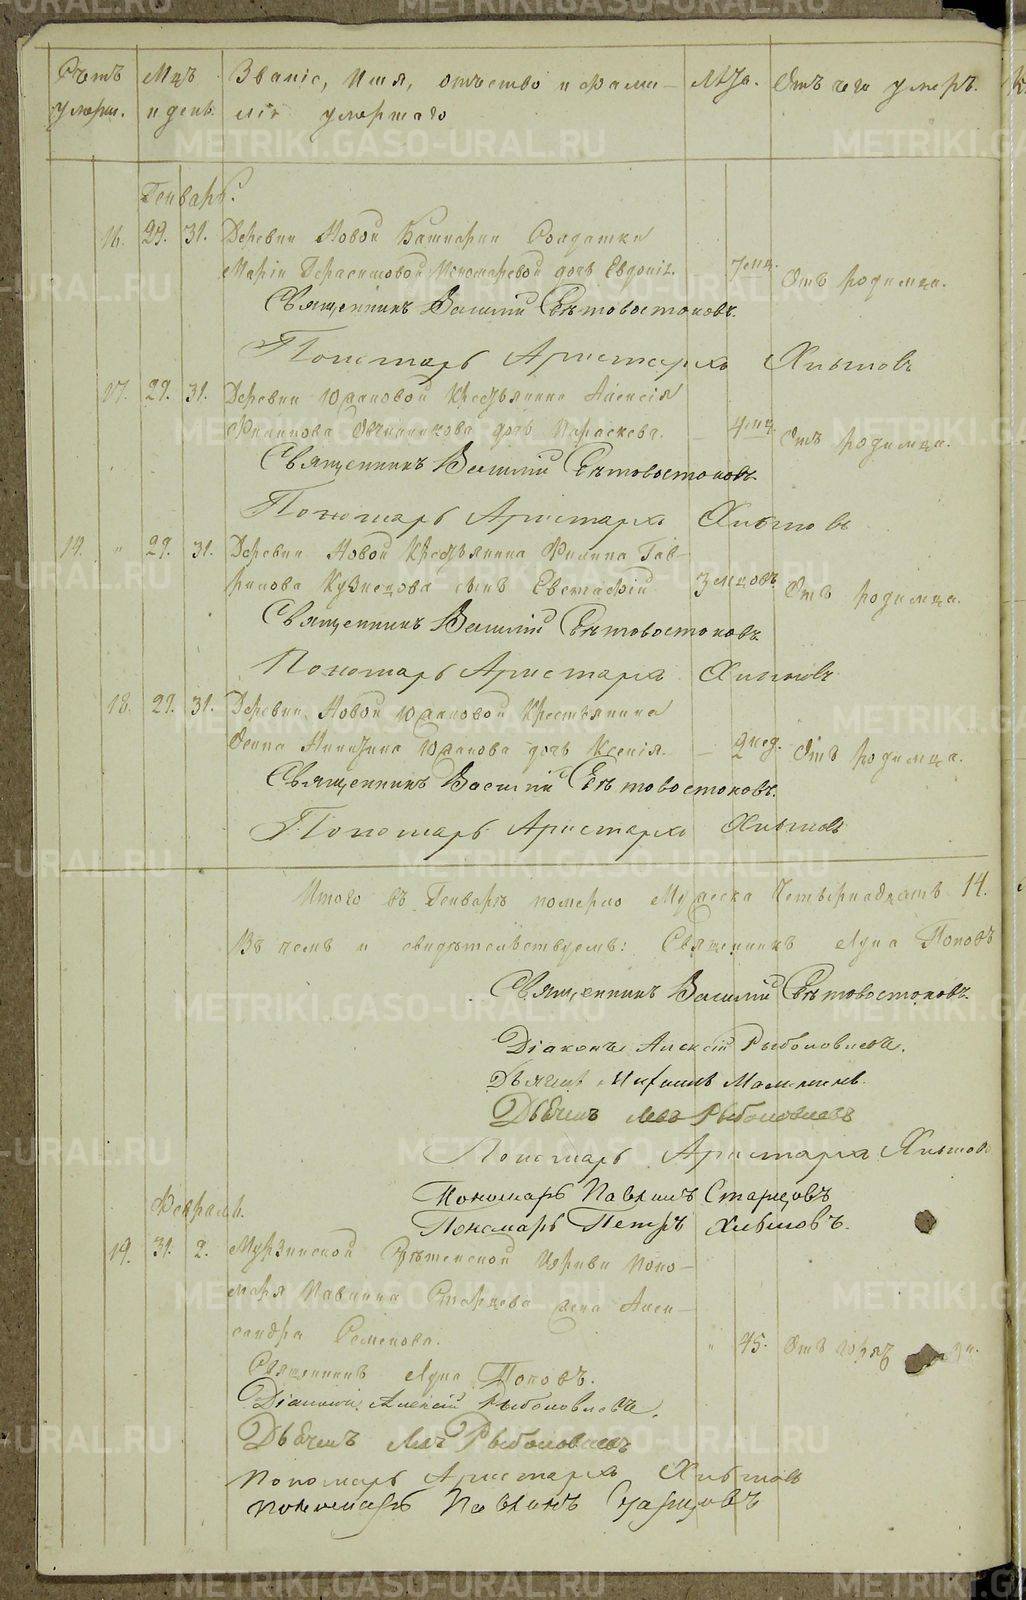 Счетъ умерш. Мцъ и день Званіе, Имя, отчество и фами-
лія умершаго Лѣта. Отъ чего умеръ.
Генварь.
16. 29. 31. Деревни Новой Башкарки Солдатки
Маріи Герасимовой Пономаревой дочь Евдокія. 7 мц. Отъ родимца.
Священникъ Василій Свѣтовостоковъ.
Пономарь Аристархъ Хлызовъ
17. 29. 31. Деревни Южаковой Крестьянина Алексія
Филипова Овчинникова дочь Параскева. 4 мц. Отъ родимца.
Священникъ Василій Свѣтовостоковъ.
Пономарь Аристархъ
14. " 29. 31. Деревни Новой Крестьянина Филипа Гав-
рилова Кузнецова сынъ Евстафій 3 мцовъ Отъ родимца.
Священникъ Василій Свѣтовостоковъ
Пономарь Аристархъ
18. 29. 31. Деревни Новой Южаковой Крестьянина
Никитина Южакова дочь Ксенія. 2 нед. Отъ родимца.
Священникъ Василій Свѣтовостоковъ.
Пономарь Аристархъ
Итого въ Генварѣ померло Мужеска Четырнадцать 14.
Въ чемъ и свидѣтельствуемъ: Священникъ Лука Поповъ
Священникъ Василій Свѣтовостоковъ.
Діаконъ Алексій Рыболовлевъ.
Дьячекъ
Дьячекъ Левъ Рыболовлевъ
Пономарь Аристархъ
Пономарь Павлинъ Старцовъ
Пономарь Петръ
Февраль.
19. 31. 2. Мурзинской Срѣтенской Церкви Поно-
маря Павлина Старцева жена Алек-
сандра Семенова. " 45. Отъ
Священникъ Лука Поповъ.
Діаконъ Алексій Рыболовлевъ.
Дьячекъ Левъ Рыболовлевъ
Пономарь Аристархъ
Пономарь Павлинъ Старцовъ
METRIKI.GASO-URAL.RU